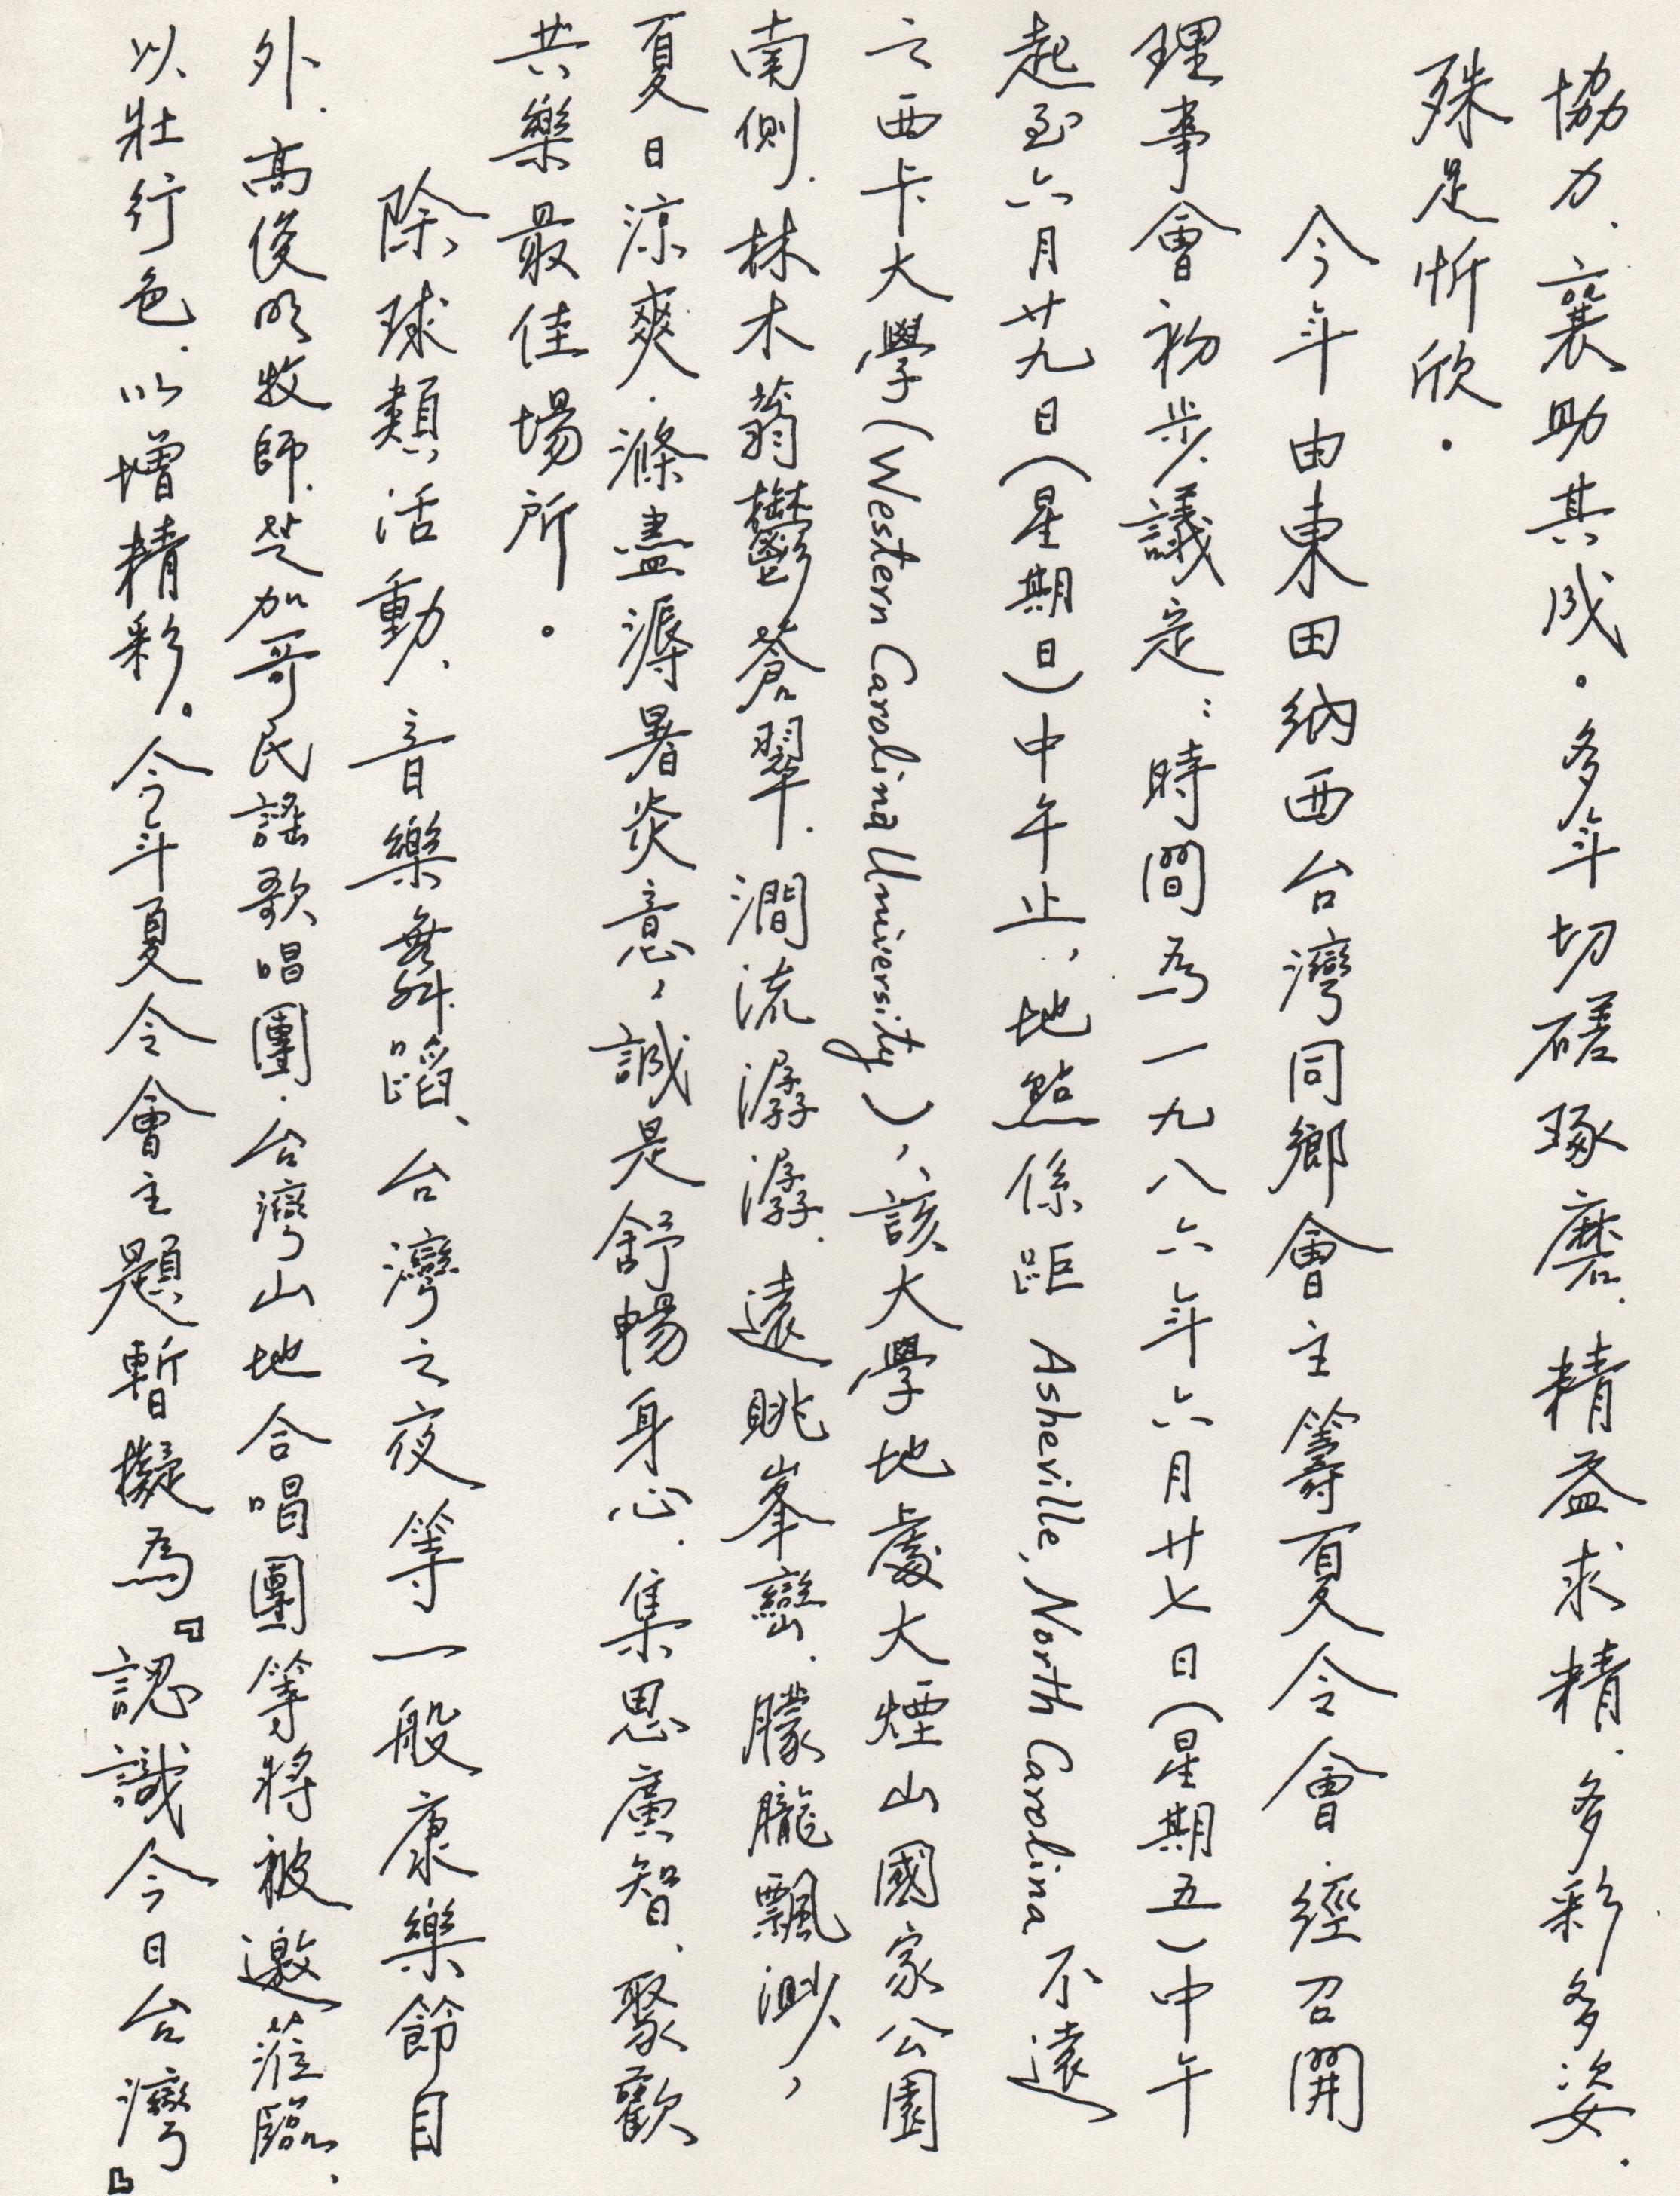 協力、襄助其成。多年切磋琢磨、精益求精、多彩多姿、
殊足忻欣。
今年由東田納西台灣同鄉會主籌夏令會、經召開
理事會初步議定：時間為一九八六年六月廿七日(星期五)中午
起至六月廿九日(星期日)中午止，地點係距 Asheville, North Carolina 不遠
之西卡大學(Western Carolina University)，該大學地處大煙山國家公園
南側、林木蓊鬱蒼翠、澗流潺潺、遠眺峯巒、朦朧飄渺，
夏日涼爽、滌盡溽暑炎意，誠是舒暢身心、集思廣智、聚歡
共樂最佳場所。
除球類活動、音樂舞蹈、台灣之夜等一般康樂節目
外、高俊明牧師、芝加哥民謠歌唱團、台灣山地合唱團等將被邀蒞臨、
以壯行色、以增精彩。今年夏令會主題暫擬為『認識今日台灣』